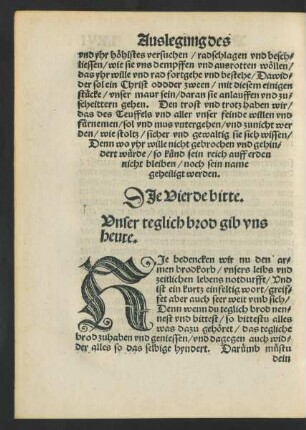 Auslegung des
vnd yhr höhistes versuchen / radschlagen vnd besch-
liessen / wie sie vns dempffen vnd ausrotten wöllen /
das yhr wille vnd rad fortgehe vnd bestehe / Dawid-
der sol ein Christ odder zween / mit diesem einigen
stücke / vnser maur sein / daran sie anlauffen vnd zu-
scheittern gehen. Den trost vnd trotz haben wir /
das des Teuffels vnd aller vnser feinde willen vnd
fürnemen / sol vnd mus vntergehen / vnd zunicht wer
den / wie stoltz / sicher vnd gewaltig sie sich wissen /
Denn wo yhr wille nicht gebrochen vnd gehin-
dert würde / so künd sein reich auff erden
nicht bleiben / noch sein name
geheiliget werden.
DJe Vierde bitte.
Vnser teglich brod gib vns
heute.
HJe bedencken wir nu den ar-
men brodkorb / vnsers leibs vnd
zeitlichen lebens notdurfft / Vnd
ist ein kurtz einfeltig wort / greif-
fet aber auch seer weit vmb sich /
Denn wenn du teglich brod nen-
nest vnd bittest / so bittestu alles
was dazu gehöret / das tegliche
brod zuhaben vnd geniessen / vnd dagegen auch wid-
der alles so das selbige hyndert. Darümb müstu
dein